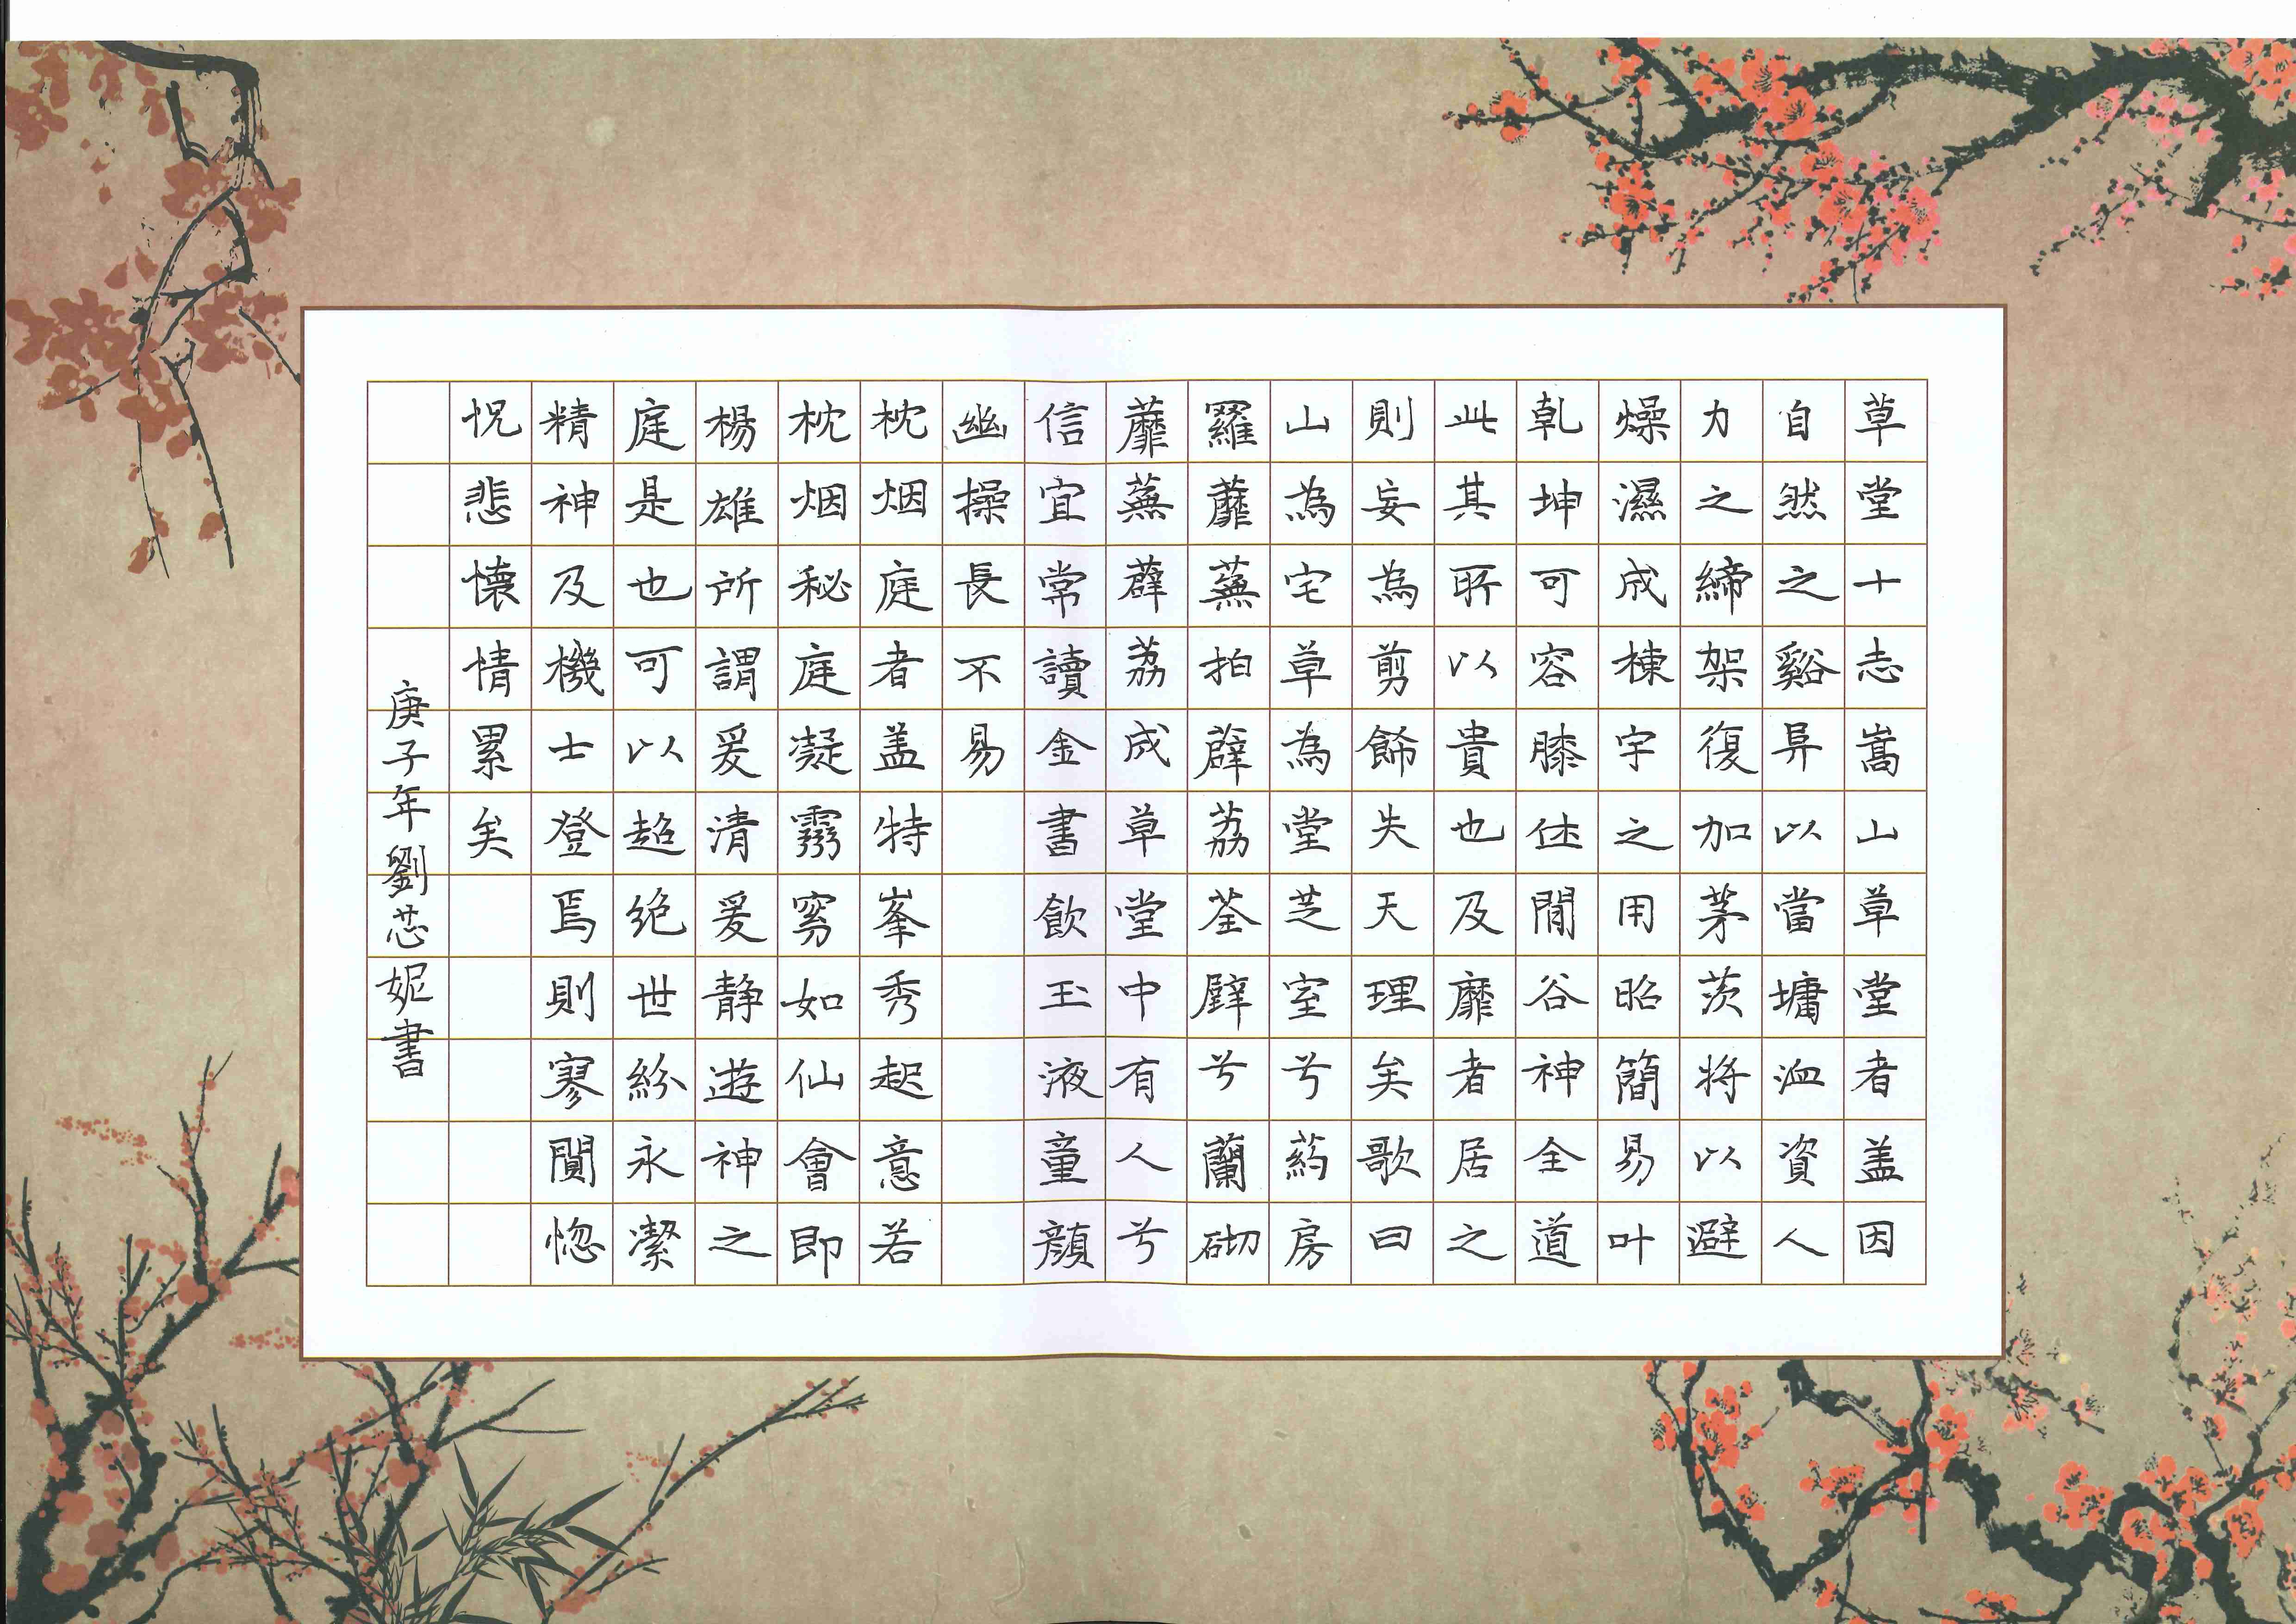 草堂十志嵩山草堂者盖因
自然之谿阜以當墉洫資人
力之締架復加茅茨将以避
燥濕成棟宇之用昭簡易叶
乹坤可容膝休閒谷神全道
此其所以貴也及靡者居之
則妄為剪餙失天理矣歌曰
山為宅兮草為堂芝室兮葯房
羅蘼蕪拍薜荔荃壁兮蘭砌
蘼蕪薜荔成草堂中有人兮
信宜常讀金書飲玉液童顔
幽操長不易
枕烟庭者盖特峯秀起意若
枕烟秘庭凝霛窈如仙會即
楊雄所謂爰清爰静遊神之
庭是也可以超绝世紛永潔
精神及機士登焉則寥闃惚
怳悲懐情累矣
庚子年劉芯妮書